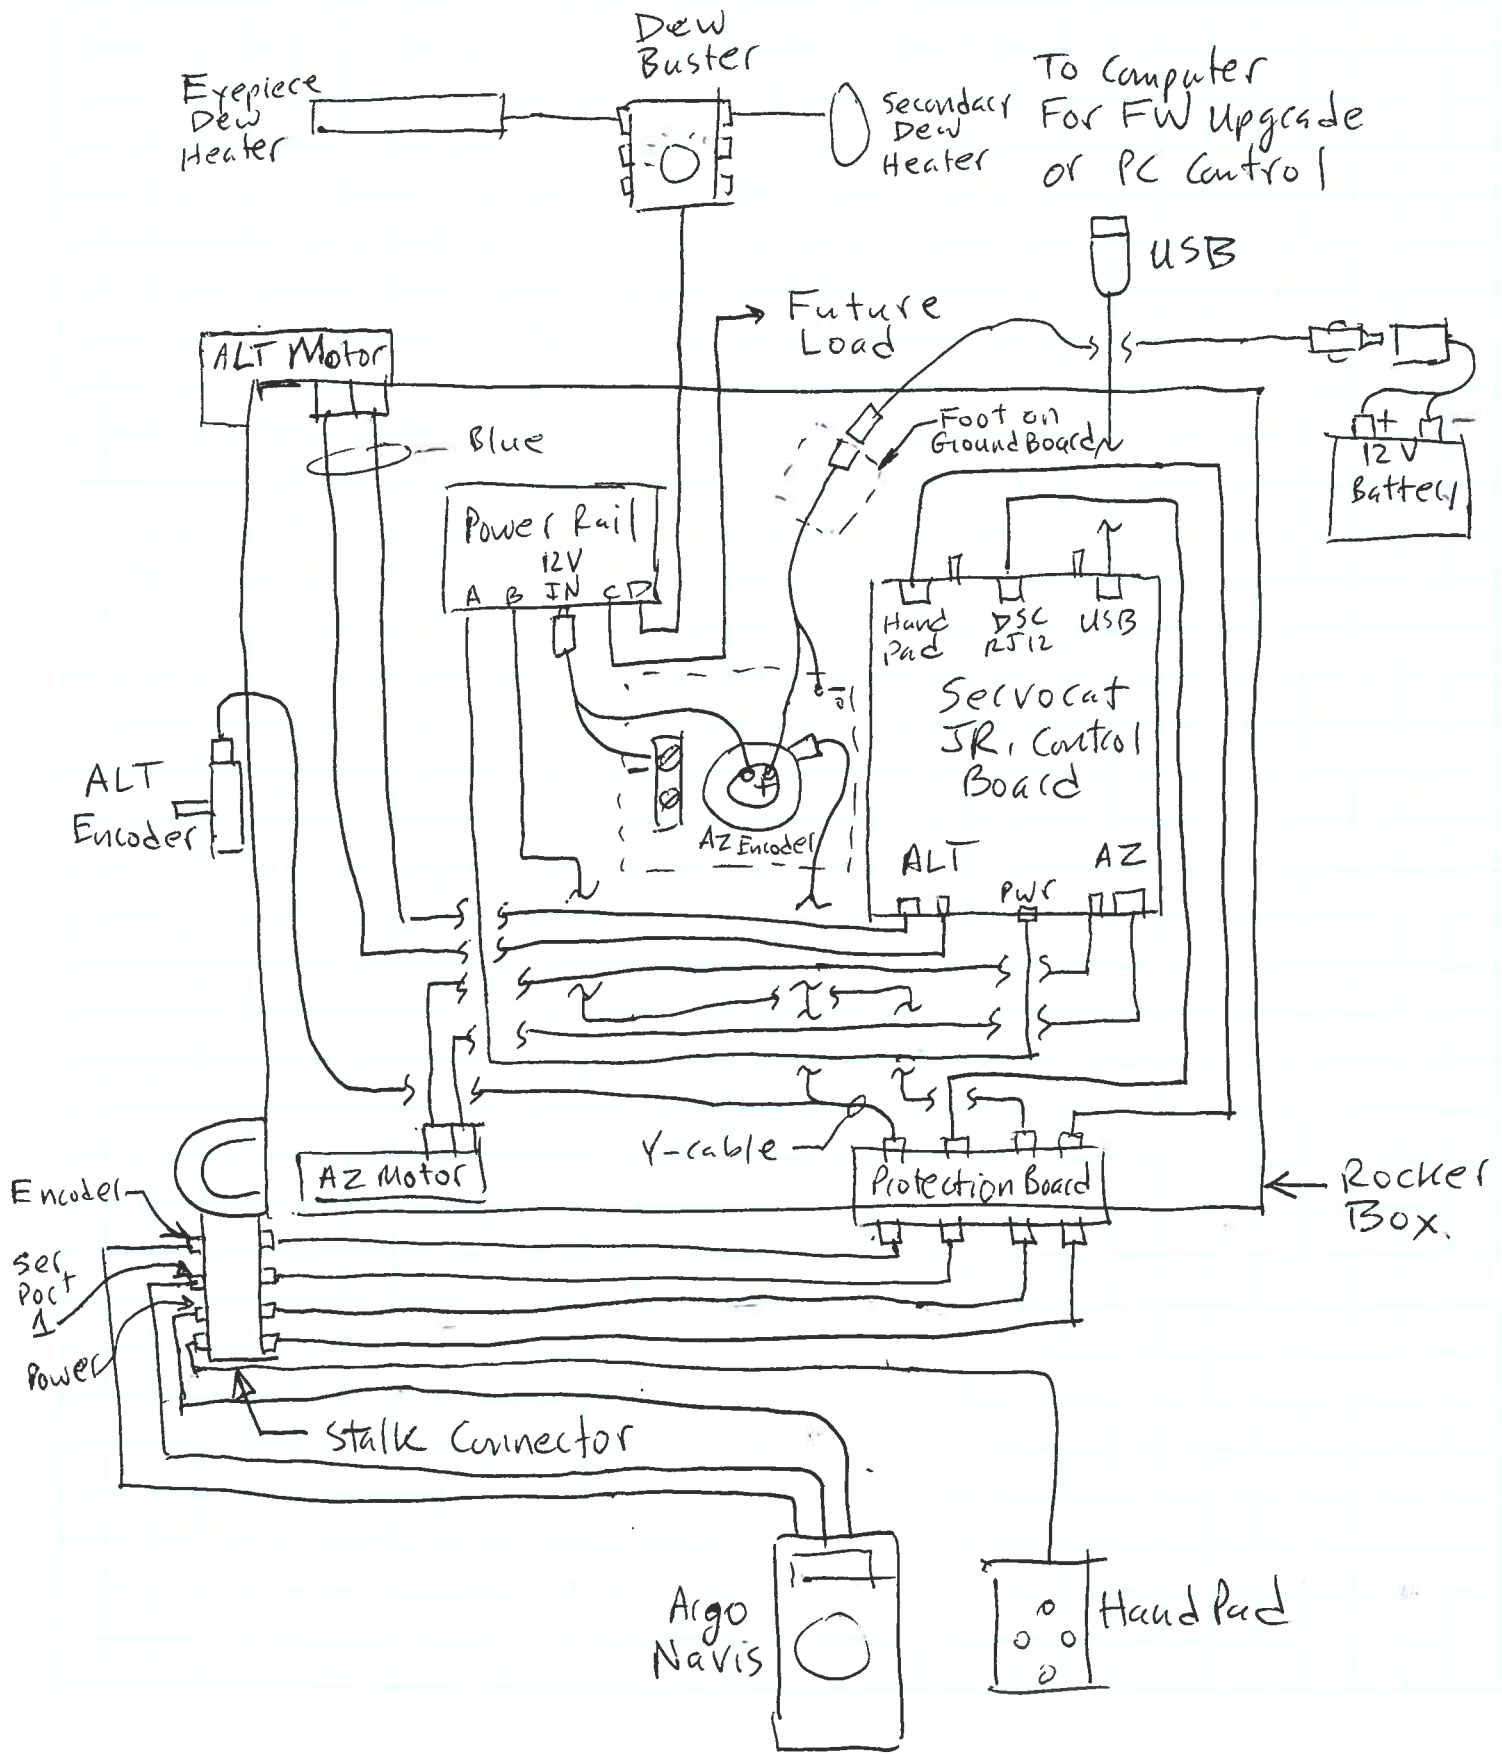 Dew
Buster
Eyepiece
Dew
Heater
Secondary
Dew
Heater
To Computer
For FW Upgrade
or PC Control
USB
Future
Load
ALT Motor
Blue
Foot on
Ground Board
+ -
12 V
Battery
Power Rail
12V
A B IN C D
Hand
Pad
DSC
RJ12
USB
Servocat
JR. Control
Board
ALT
Encoder
+
-
+
AZ Encoder
ALT
PWR
AZ
Y-cable
AZ Motor
Protection Board
Rocker
Box.
Encoder
Ser
Port
1
Power
Stalk Connector
Argo
Navis
Hand Pad